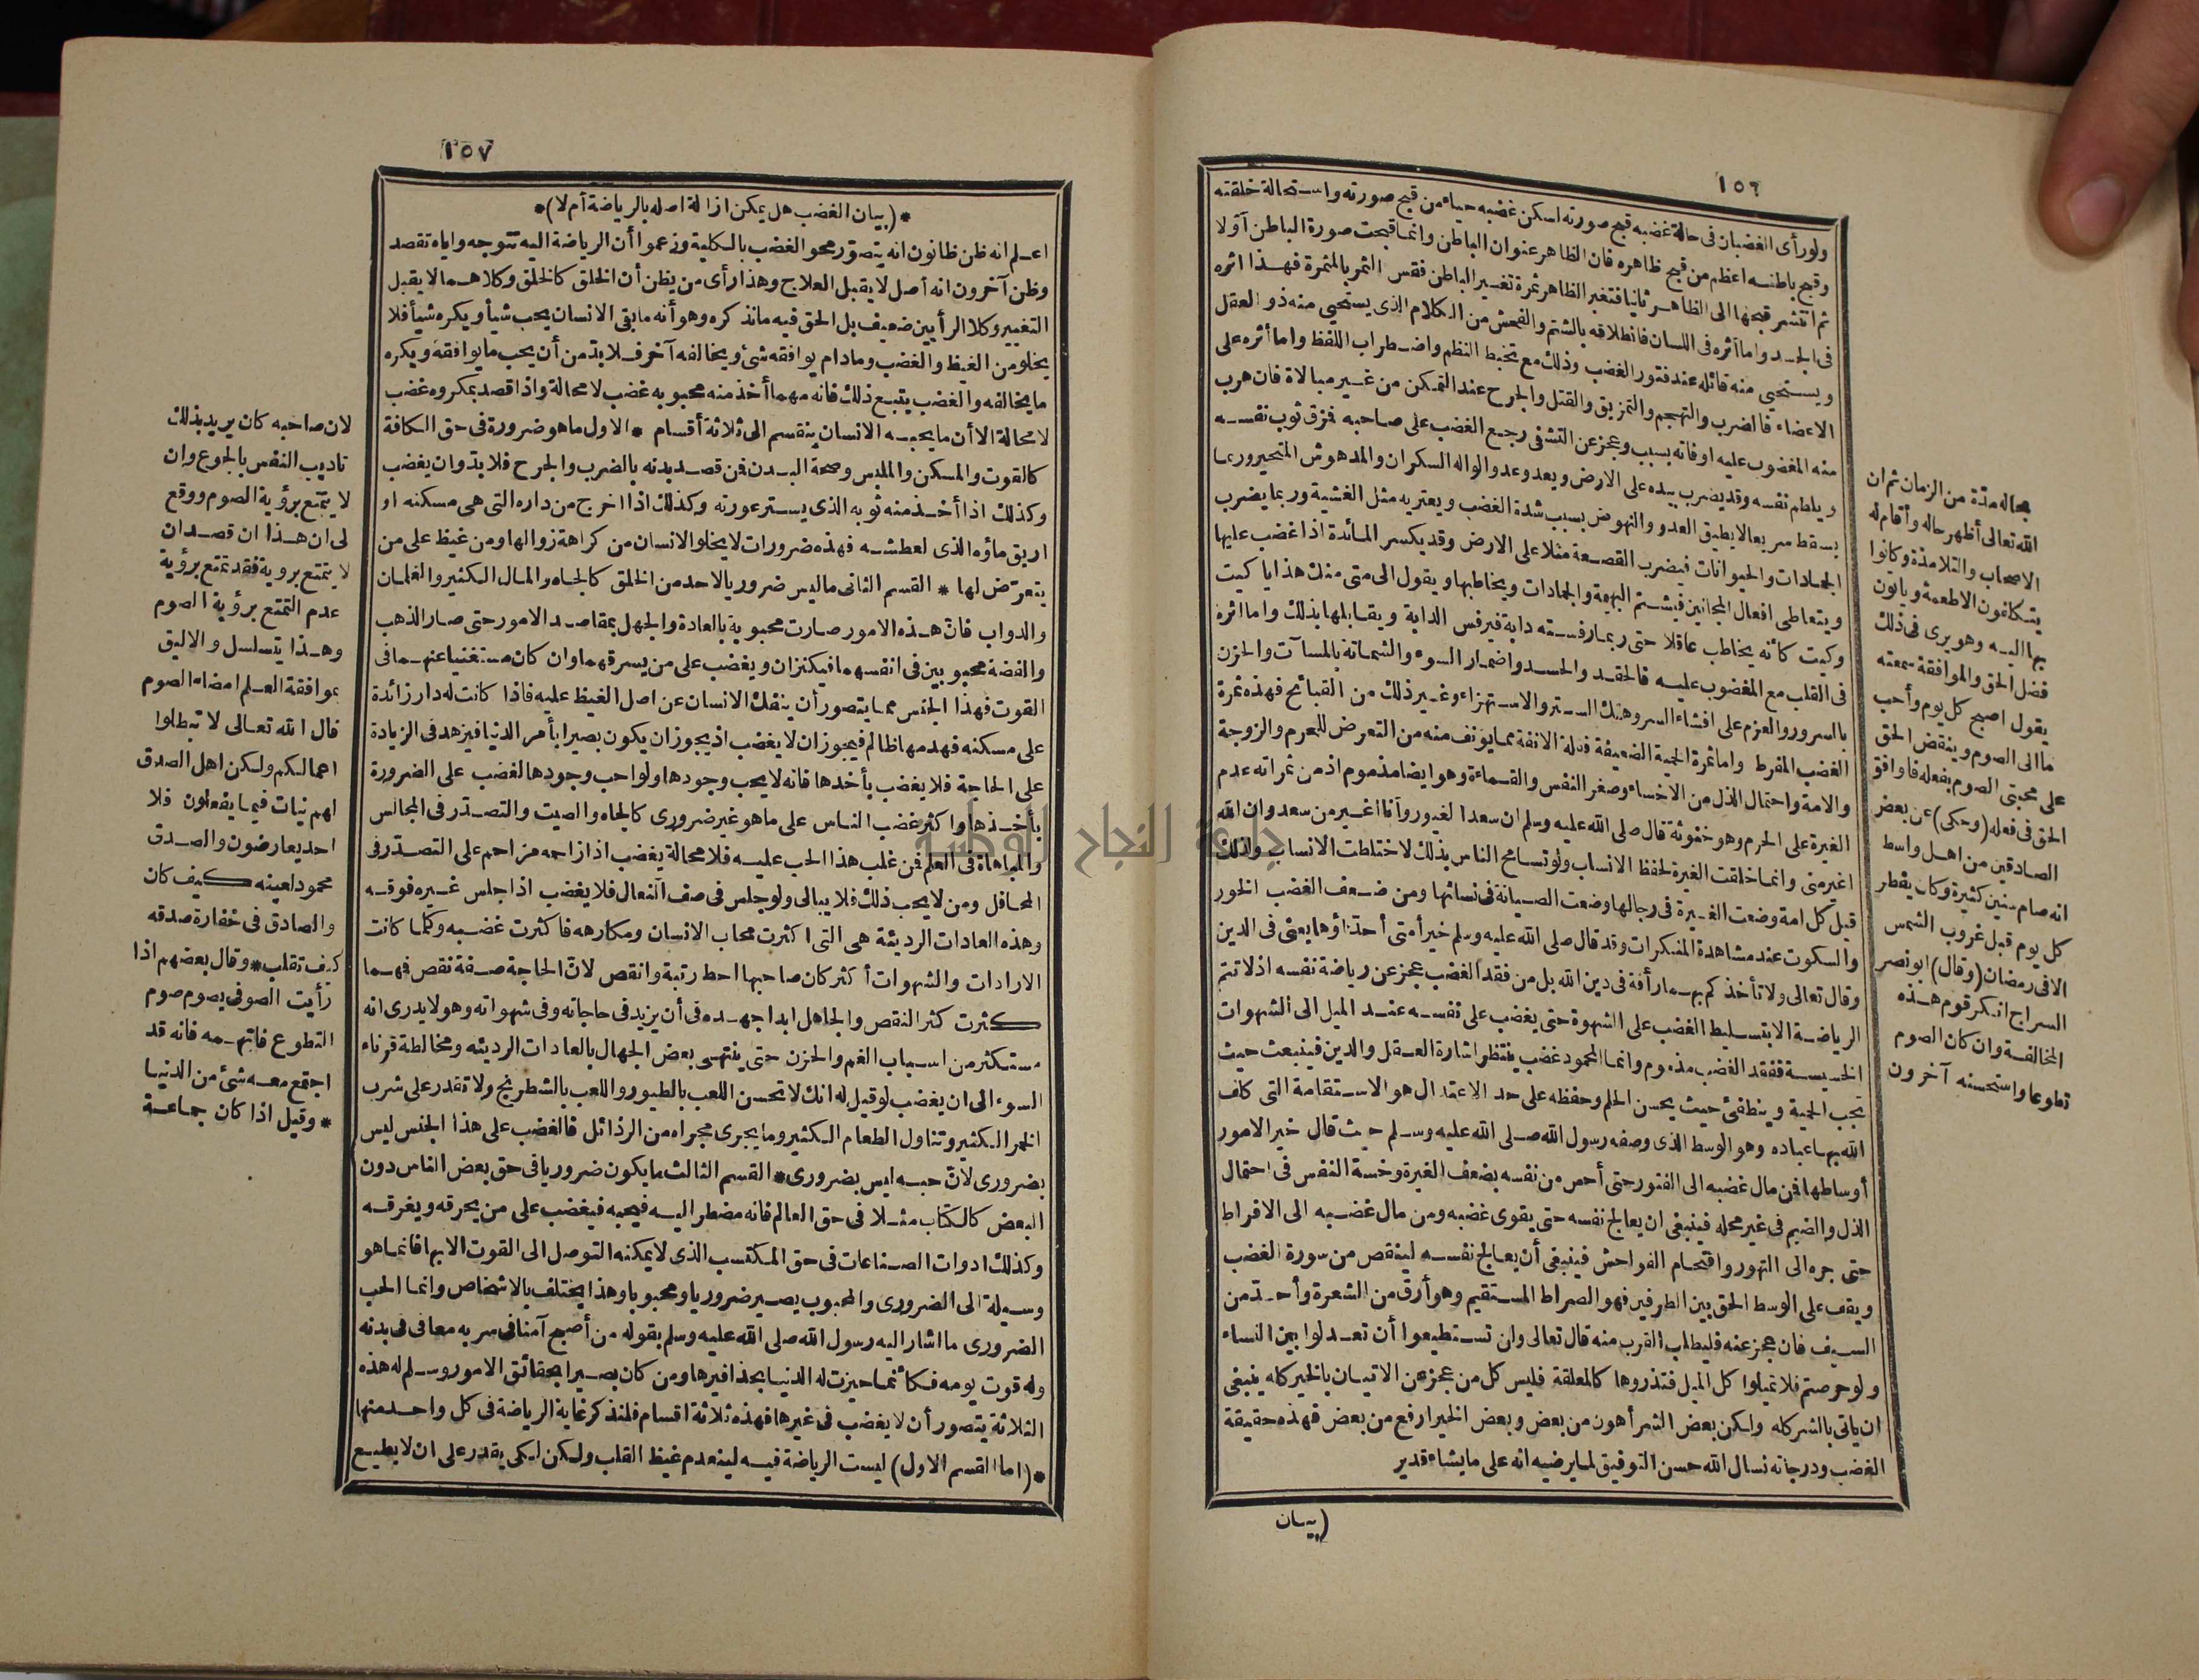 ١٥٦
ولو رأى الغضبان فى حالة غضبه قبح صورته لسكن غضبه حياء من قبح صورته واستحالة خلقته
وقبح باطنه اعظم من قبح ظاهره فان الظاهر عنوان الباطن وانما قبحت صورة الباطن أولا
ثم انتشر قبحها الى الظاهر ثانيا فتغير الظاهر ثمرة تغير الباطن فقس الثمر بالمثمرة فهذا اثره
فى الجسد واما أثره فى اللسان فانطلاقه بالشتم والفحش من الكلام الذى يستحيى منه ذو العقل
ويستحيى منه قائله عند فتور الغضب وذلك مع تخبط النظم واضطراب اللفظ واما أثره على
الاعضاء فالضرب والتهجم والتمزيق والقتل والجرح عند التمكن من غير مبالاة فان هرب
منه المغضوب عليه او فاته بسبب وعجز عن التشفى رجع الغضب على صاحبه فزق ثوب نفسه
ويلطم نفسه وقد يضرب بيده على الارض ويعدو عدو الواله السكران والمدهوش المتحير وربما
يسقط سريعا لا يطيق العدو والنهوض بسبب شدة الغضب ويعتريه مثل الغشية وربما يضرب
الجمادات والحيوانات فيضرب القصعة مثلا على الارض وقد يكسر المائدة اذا غضب عليها
ويتعاطى افعال المجانين فيشتم البهيمة والجمادات ويخاطبها ويقول الى متى منك هذا يا كيت
وكيت كأنه يخاطب عاقلا حتى ربما رفسته دابة فيرفس الدابة ويقابلها بذلك واما اثره
فى القلب مع المغضوب عليه فالحقد والحسد واضمار السوء والشماتة بالمسآت والحزن
بالسرور والعزم على افشاء السر وهتك الستر والاستهزاء وغير ذلك من القبائح فهذه ثمرة
الغضب المفرط واما ثمرة الحمية الضعيفة فقلة الانفة مما يؤنف منه من التعرض للحرم والزوجة
والامة واحتمال الذل من الاخساء وصغر النفس والقماءة وهو ايضا مذموم اذ من ثمراته عدم
الغيرة على الحرم وهو خنوثة قال صلى الله عليه وسلم ان سعدا لغيور وأنا اغير من سعد وان الله
اغير منى وانما خلقت الغيرة لحفظ الانساب ولو تسامح الناس بذلك لاختلطت الانساب ولذلك
قيل كل امة وضعت الغيرة فى رجالها وضعت الصيانة فى نسائها ومن ضعف الغضب الخور
والسكوت عند مشاهدة المنكرات وقد قال صلى الله عليه وسلم خير أمتى أحداؤها يعنى فى الدين
وقال تعالى ولا تأخذكم بهما رأفة فى دين الله بل من فقد الغضب عجز عن رياضة نفسه اذ لا تتم
الرياضة الا بتسليط الغضب على الشهوة حتى يغضب على نفسه عند الميل الى الشهوات
الخسيسة ففقد الغضب مذموم وانما المحمود غضب ينتظر اشارة العقل والدين فينبعث حيث
تجب الحمية وينطفئ حيث يحسن الحلم وحفظه على حد الاعتدال هو الاستقامة التى كلف
الله بها عباده وهو الوسط الذى وصفه رسول الله صلى الله عليه وسلم حيث قال خير الامور
أوساطها فن مال غضبه الى الفتور حتى أحس من نفسه بضعف الغيرة وخسة النفس فى احتمال
الذل والضيم فى غير محله فينبغى ان يعالج نفسه حتى يقوى غضبه ومن مال غضبه الى الافراط
حتى جره الى التهور واقتحام الفواحش فينبغى أن يعالج نفسه لينقص من سورة الغضب
ويقف على الوسط الحق بين الطرفين فهو الصراط المستقيم وهو أرق من الشعرة وأحد من
السيف فان عجز عنه فليطلب القرب منه قال تعالى ولن تستطيعوا أن تعدلوا بين النساء
ولو حرصتم فلا تميلوا كل الميل فتذروها كالمعلقة فليس كل من عجز عن الاتيان بالخير كله ينبغى
ان ياتى بالشر كله ولكن بعض الشر أهون من بعض وبعض الخير ارفع من بعض فهذه حقيقة
الغضب ودرجاته نسال الله حسن التوفيق لما يرضيه انه على ما يشاء قدير
(بيان
بحاله مدة من الزمان ثم ان
الله تعالى أظهر حاله وأقام له
الاصحاب والتلامذة وكانوا
يتكلفون الاطعمة وياتون
بها اليه وهو يرى فى ذلك
فضل الحق والموافقة سمعته
يقول اصبح كل يوم وأحب
ما الى الصوم وينقض الحق
على محبتى الصوم بفعله فاوافق
الحق فى فعله (وحكى) عن بعض
الصادقين من اهل واسط
انه صام سنين كثيرة وكان يفطر
كل يوم قبل غروب الشمس
الا فى رمضان (وقال) ابو نصر
السراج انكر قوم هذه
المخالفة وان كان الصوم
تطوعا واستحسنه آخرون
١٥٧
*(بيان الغضب هل يمكن ازالة اصله بالرياضة أم لا)*
اعلم انه ظن ظانون انه يتصور محو الغضب بالكلية وزعموا أن الرياضة اليه تتوجه واياه تقصد
وظن آخرون انه أصل لا يقبل العلاج وهذا رأى من يظن أن الخلق كالخلق وكلاهما لا يقبل
التغيير وكلا الرأيين ضعيف بل الحق فيه ما نذكره وهو أنه ما بقى الانسان يحب شيأ ويكره شيأ فلا
يخلو من الغيظ والغضب ومادام يوافقه شئ ويخالفه آخر فلا بد من أن يحب ما يوافقه ويكره
ما يخالفه والغضب يتبع ذلك فانه مهما أخذ منه محبوبه غضب لا محالة واذا قصد بمكروه غضب
لا محالة الا أن ما يحبه الانسان ينقسم الى ثلاثة أقسام * الاول ما هو ضرورة فى حق الكافة
كالقوت والمسكن والملبس وصحة البدن فن قصد بدنه بالضرب والجرح فلا بد وان يغضب
وكذلك اذا أخذ منه ثوبه الذى يستر عورته وكذلك اذا اخرج من داره التى هى مسكنه او
اريق ماؤه الذى لعطشه فهذه ضرورات لا يخلو الانسان من كراهة زوالها ومن غيظ على من
يتعرض لها * القسم الثانى ما ليس ضروريا لاحد من الخلق كالجاه والمال الكثير والغلمان
والدواب فان هذه الامور صارت محبوبة بالعادة والجهل بمقاصد الامور حتى صار الذهب
والفضة محبوبين فى انفسهما فيكنزان ويغضب على من يسرقهما وان كان مستغنيا عنهما فى
القوت فهذا الجنس مما يتصور أن ينفك الانسان عن اصل الغيظ عليه فاذا كانت له دار زائدة
على مسكنه فهدمها ظالم فيجوز ان لا يغضب اذ يجوز ان يكون بصيرا بأمر الدنيا فيزهد فى الزيادة
على الحاجة فلا يغضب بأخذها فانه لا يحب وجودها ولو احب وجودها لغضب على الضرورة
بأخذها واكثر غضب الناس على ما هو غير ضرورى كالجاه والصيت والتصدر فى المجالس
والمباهاة فى العلم فن غلب هذا الحب عليه فلا محالة يغضب اذا زاحمه مزاحم على التصدر فى
المحافل ومن لا يحب ذلك فلا يبالى ولو جلس فى صف النعال فلا يغضب اذا جلس غيره فوقه
وهذه العادات الرديئة هى التى اكثرت محاب الانسان ومكارهه فاكثرت غضبه وكلما كانت
الارادات والشهوات أكثر كان صاحبها احط رتبة وانقص لان الحاجة صفة نقص فهما
كثرت كثر النقص والجاهل ابدا جهده فى أن يزيد فى حاجاته وفى شهواته وهو لا يدرى انه
مستكثر من اسباب الغم والحزن حتى ينتهى بعض الجهال بالعادات الرديئه ومخالطة قرناء
السوء الى ان يغضب لو قيل له انك لا تحسن اللعب بالطيور واللعب بالشطرنج ولا تقدر على شرب
الخمر الكثير وتناول الطعام الكثير وما يجرى مجراه من الرذائل فالغضب على هذا الجنس ليس
بضرورى لان حبه ليس بضرورى * القسم الثالث ما يكون ضروريا فى حق بعض الناس دون
البعض كالكتاب مثلا فى حق العالم فانه مضطر اليه فيحبه فيغضب على من يحرقه ويغرقه
وكذلك ادوات الصناعات فى حق المكتسب الذى لا يمكنه التوصل الى القوت الا بها فانما هو
وسيلة الى الضرورى والمحبوب يصير ضروريا ومحبوبا وهذا يختلف بالاشخاص وانما الحب
الضرورى ما اشار اليه رسول الله صلى الله عليه وسلم بقوله من أصبح آمنا فى سربه معافى فى بدنه
وله قوت يومه فكأنما حيزت له الدنيا بحذافيرها ومن كان بصيرا بحقائق الامور وسلم له هذه
الثلاثة يتصور أن لا يغضب فى غيرها فهذه ثلاثة اقسام فلنذكر غاية الرياضة فى كل واحد منها
*(اما القسم الاول) ليست الرياضة فيه لينعدم غيظ القلب ولكن لكى يقدر على ان لا يطيع
لان صاحبه كان يريد بذلك
تاديب النفس بالجوع وان
لا يتمتع برؤية الصوم ووقع
لى ان هذا ان قصد ان
لا يتمتع بروية فقد تمتع برؤية
عدم التمتع برؤية الصوم
وهذا يتسلسل والاليق
بموافقة العلم امضاء الصوم
قال الله تعالى لا تبطلوا
اعمالكم ولكن اهل الصدق
لهم نيات فيما يفعلون فلا
احد يعارضون والصدق
محمود لعينه كيف كان
والصادق فى خفارة صدقه
كيف تقلب * وقال بعضهم اذا
رأيت الصوفى يصوم صوم
التطوع فاتهمه فانه قد
اجتمع معه شئ من الدنيا
* وقيل اذا كان جماعة
جامعة النجاح الوطنية